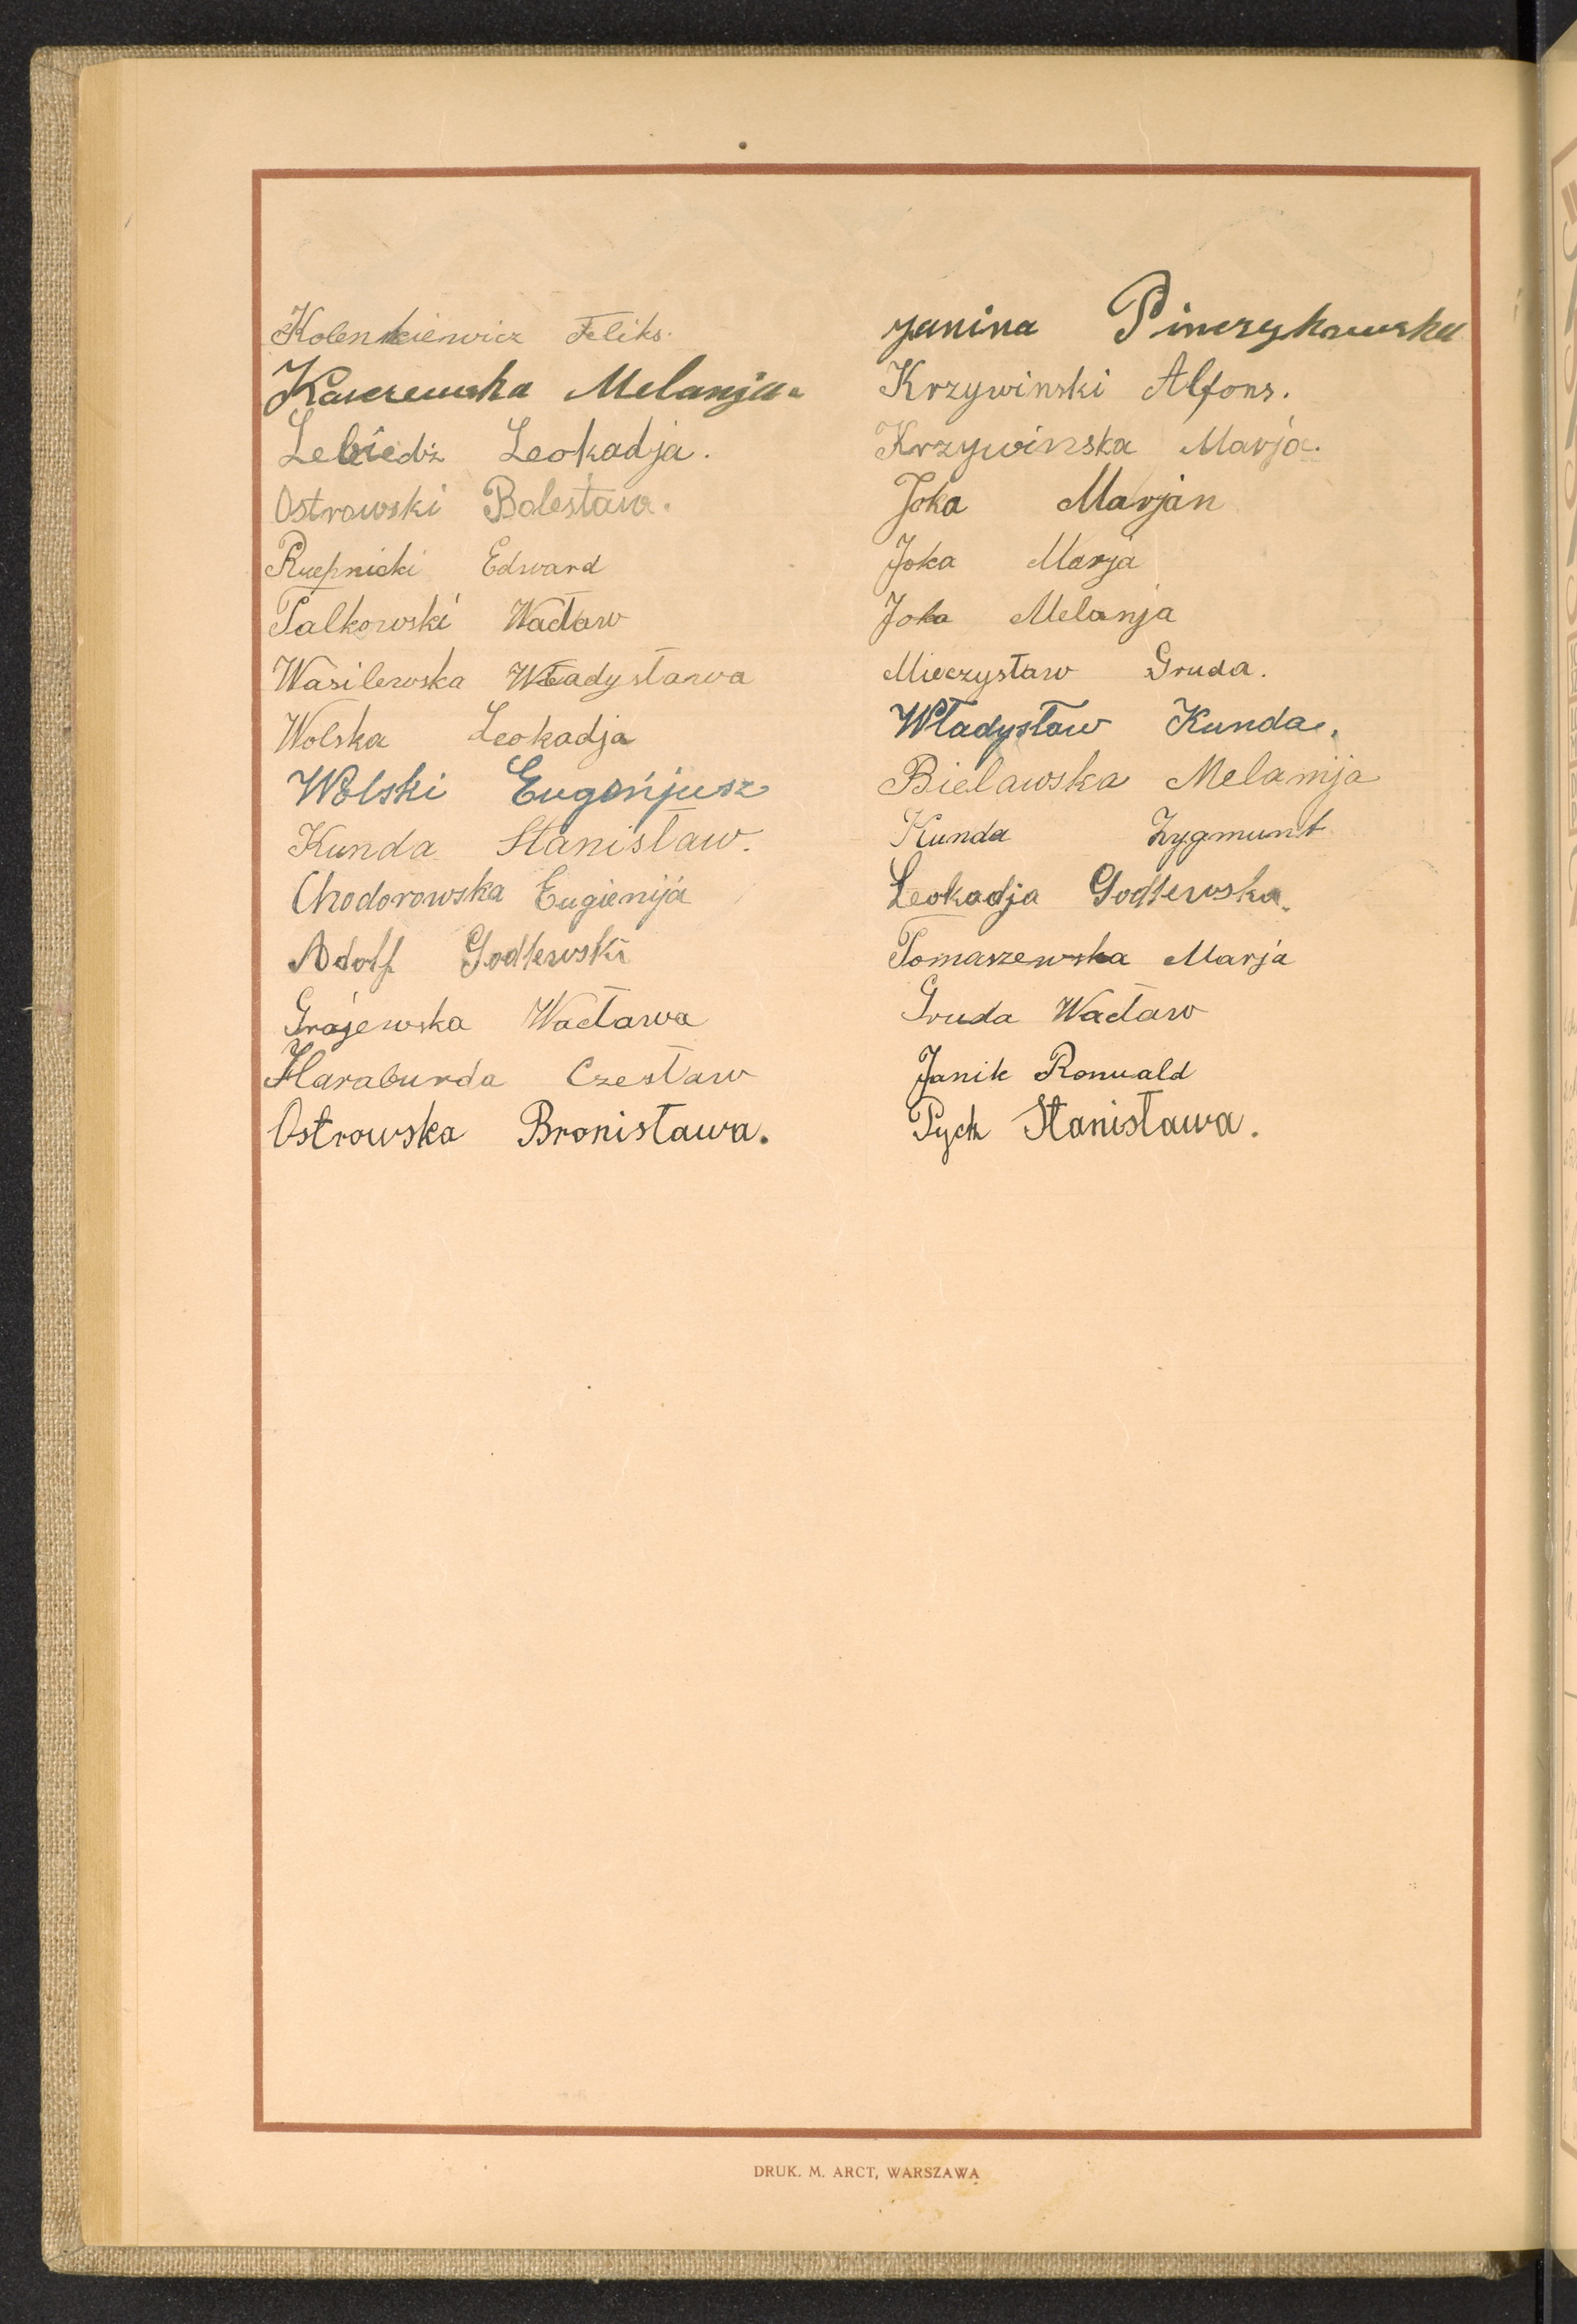 Kolenkiewicz Feliks.
Melanja.
Lebiedź Leokadja.
Ostrowski Bolesław.
Rzepnicki Edward
Talkowski Wacław
Wasilewska Władysława
Wolska Leokadja
Wolski Eugenjusz
Kunda Stanisław.
Chodorowska Eugienija
Adolf Godlewski
Grajewska Wacława
Haraburda Czesław
Ostrowska Bronisława.
Janina
Krzywinski Alfons.
Krzywinska Marja.
Joka Marjan
Joka Marja
Joka Melanja
Mieczysław Gruda.
Władysław Kunda.
Bielawska Melanija
Kunda Zygmunt
Leokadja Godlewska.
Tomaszewska Marja
Gruda Wacław
Janik Romuald
Pych Stanisława.
DRUK. M. ARCT, WARSZAWA